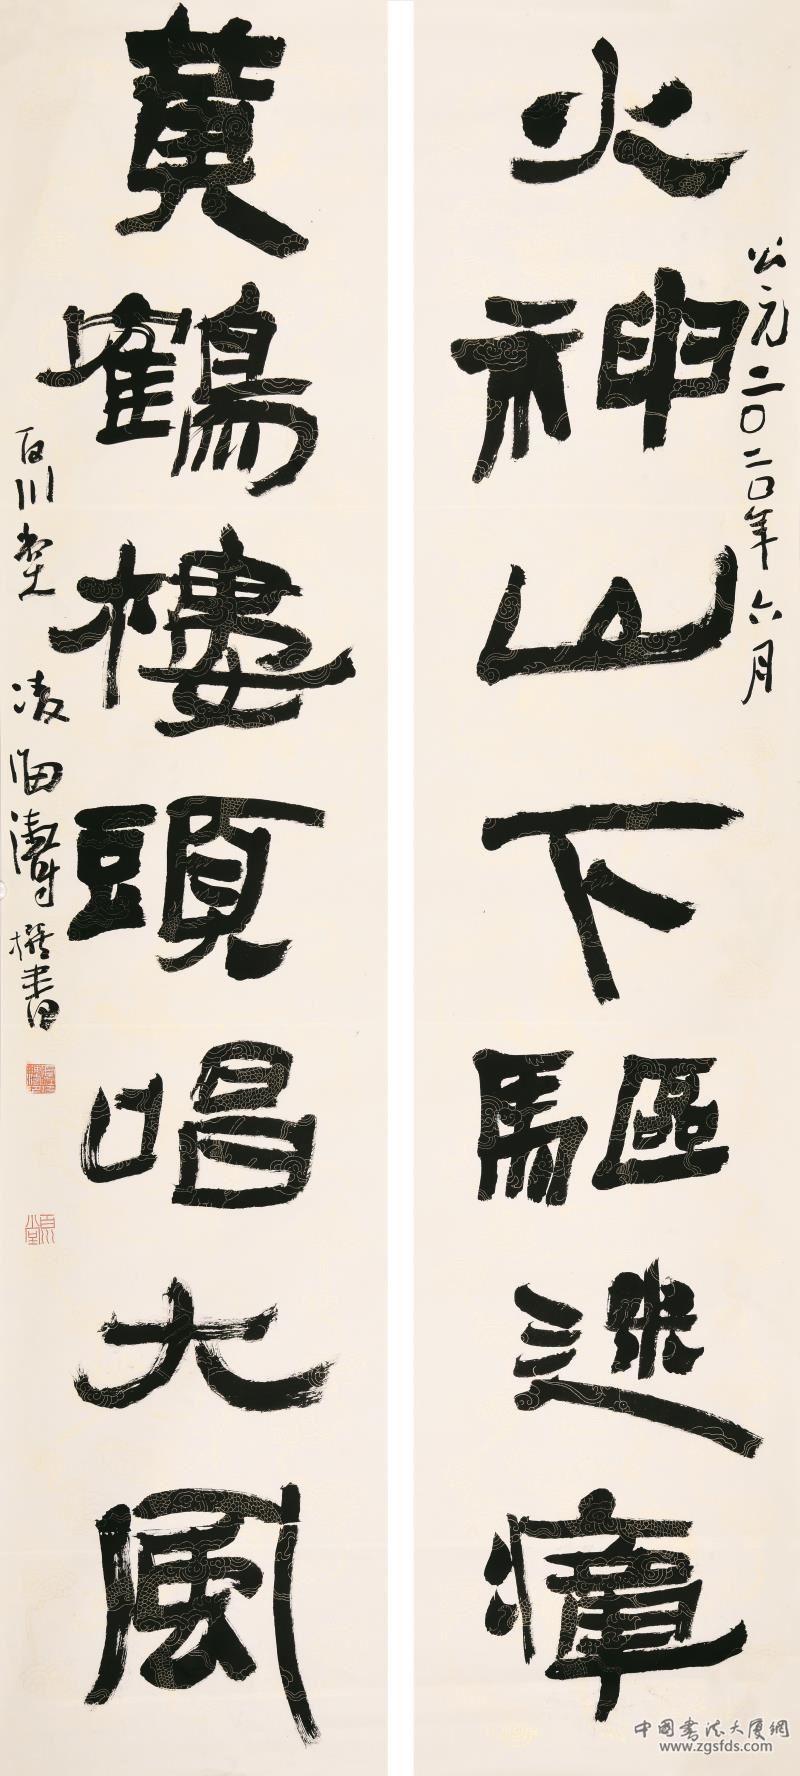 火神山下驅瘴
公元二〇二〇年六月
黃鶴樓頭唱大風
百川堂 凌海濤撰書
中國書法大廈網
www.zgsfds.com